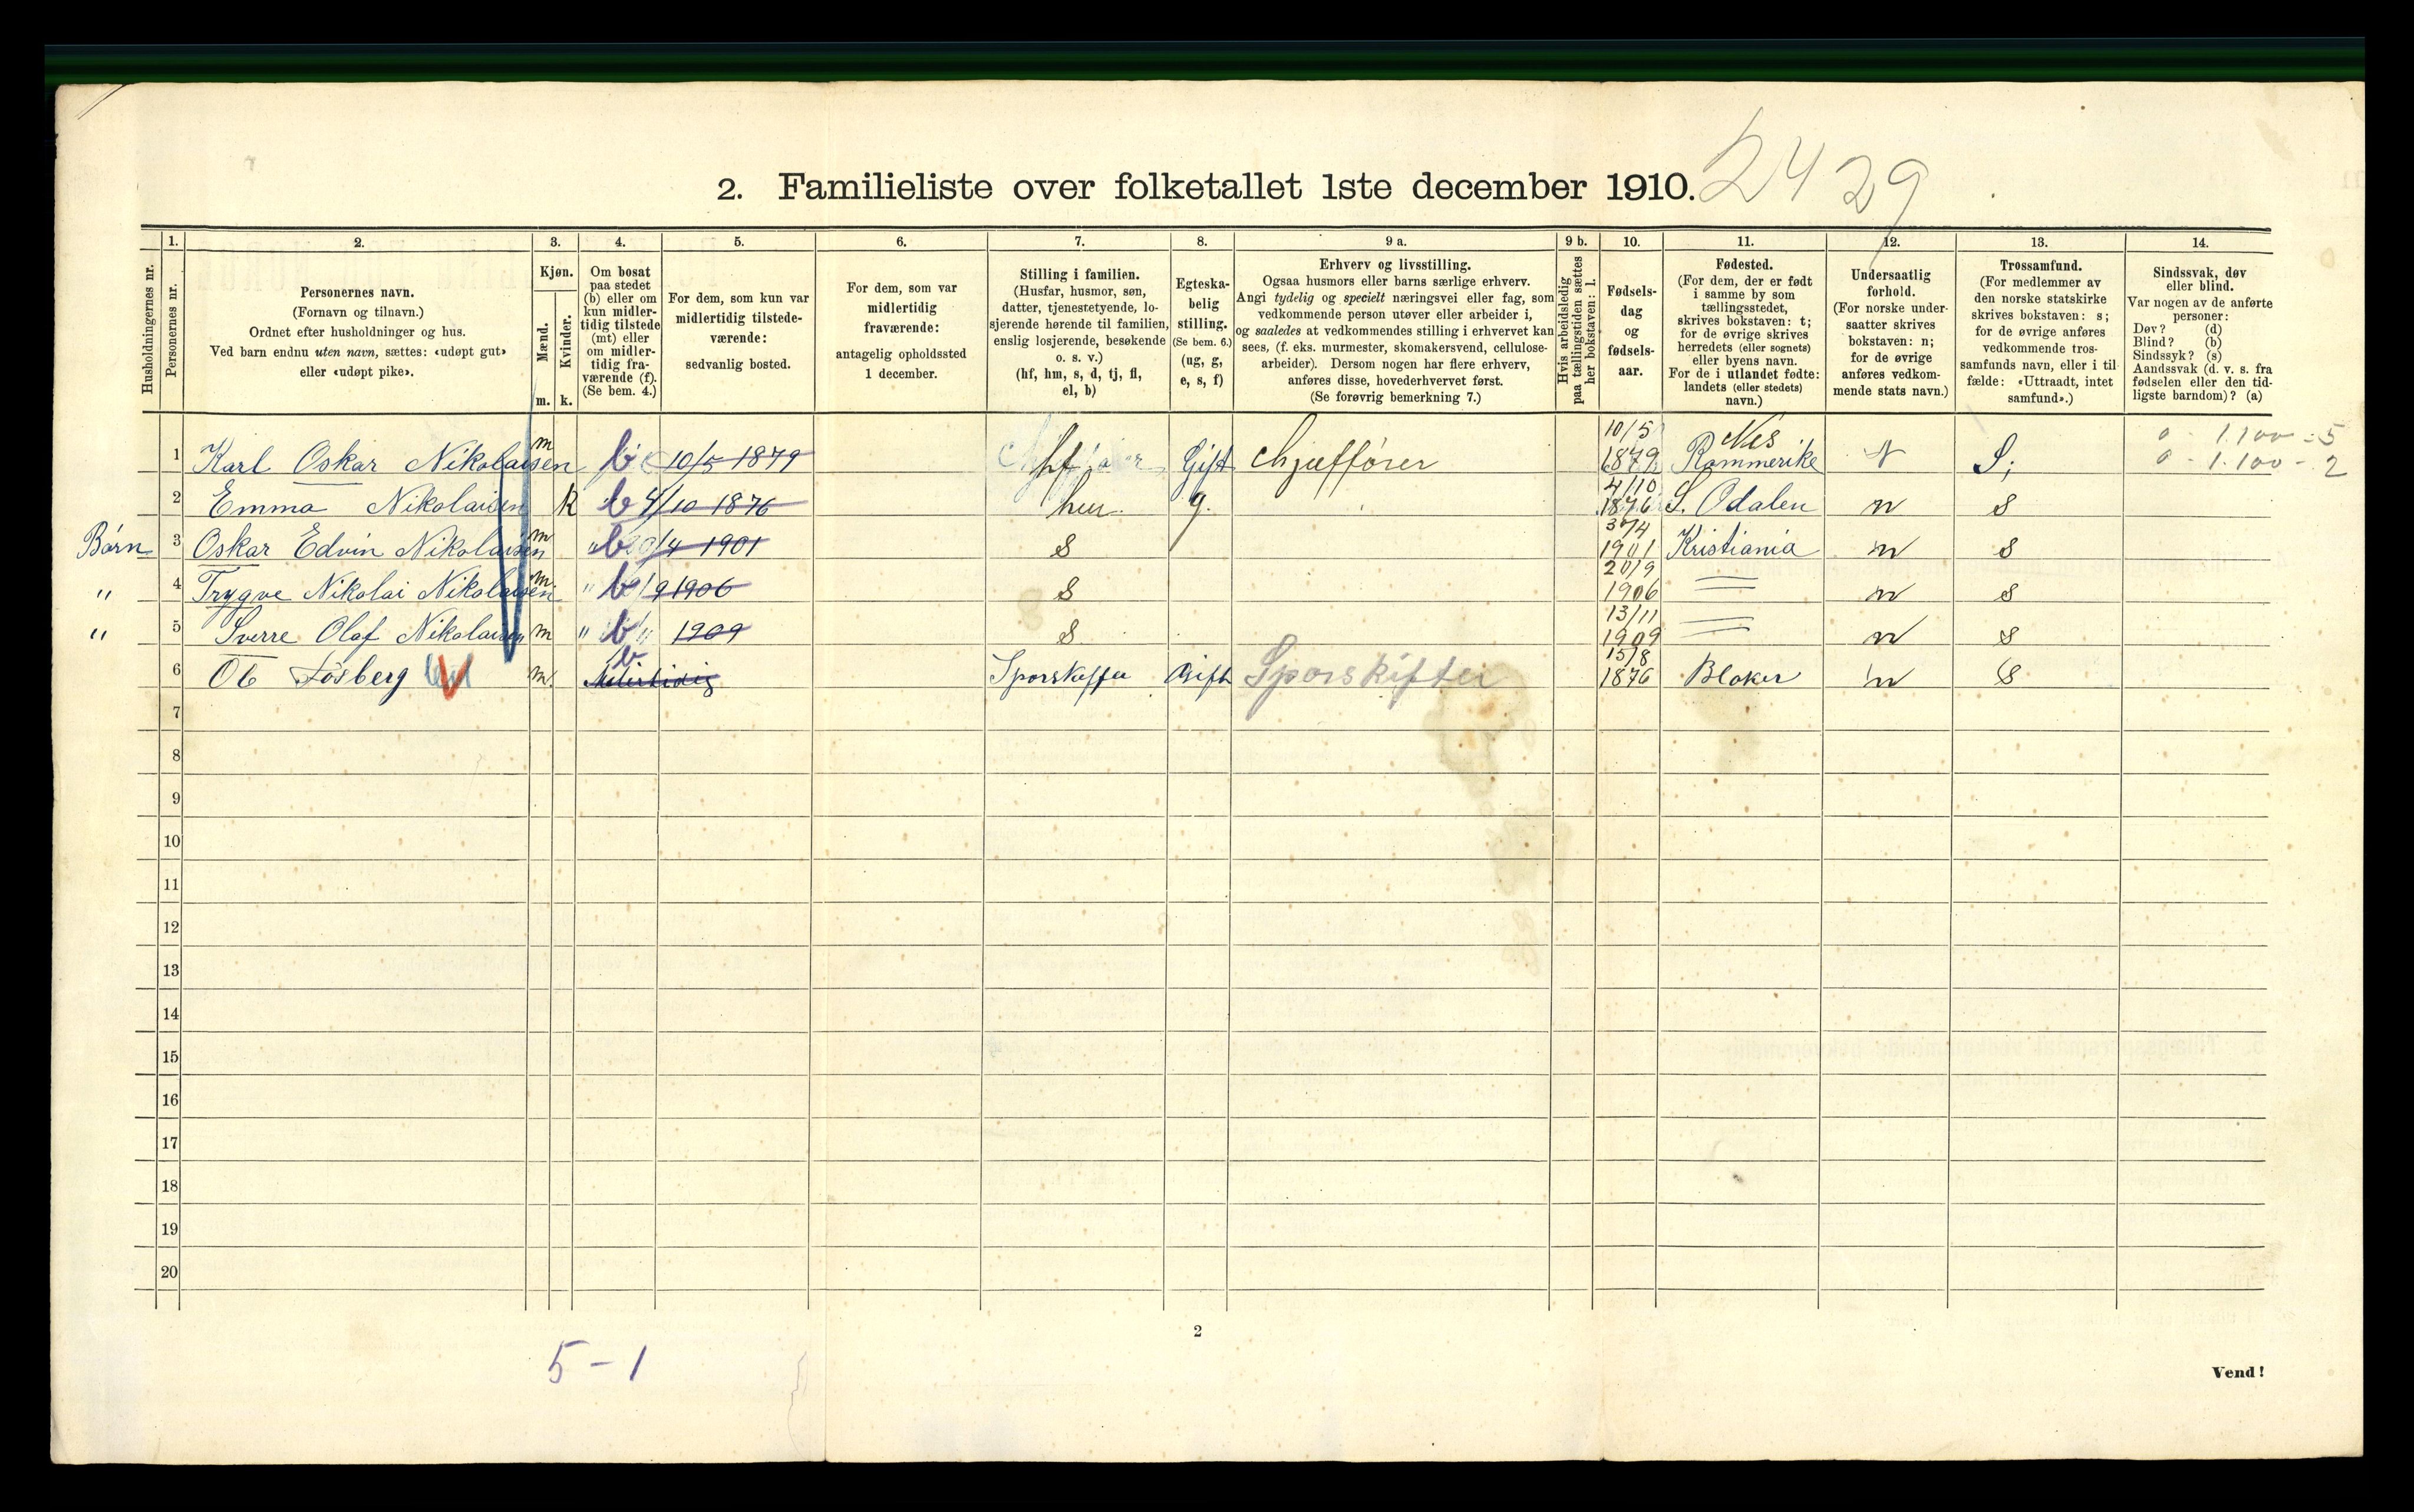 2429
2. Familieliste over folketallet 1ste december 1910.
Husholdningernes nr.
1. Personernes nr.
2. Personernes navn.
(Fornavn og tilnavn.)
Ordnet efter husholdninger og hus.
Ved barn endnu uten navn, sættes: «udøpt gut»
eller «udøpt pike».
3. Kjøn.
Mænd. m.
Kvinder. k.
4. Om bosat
paa stedet
(b) eller om
kun midler-
tidig tilstede
(mt) eller
om midler-
tidig fra-
værende (f).
(Se bem. 4.)
5. For dem, som kun var
midlertidig tilstede-
værende:
sedvanlig bosted.
6. For dem, som var
midlertidig
fraværende:
antagelig opholdssted
1 december.
7. Stilling i familien.
(Husfar, husmor, søn,
datter, tjenestetyende, lo-
sjerende hørende til familien,
enslig losjerende, besøkende
o. s. v.)
(hf, hm, s, d, tj, fl,
el, b)
8. Egteska-
belig
stilling.
(Se bem. 6.)
(ug, g,
e, s, f)
9 a. Erhverv og livsstilling.
Ogsaa husmors eller barns særlige erhverv.
Angi tydelig og specielt næringsvei eller fag, som
vedkommende person utøver eller arbeider i,
og saaledes at vedkommendes stilling i erhvervet kan
sees, (f. eks. murmester, skomakersvend, cellulose-
arbeider). Dersom nogen har flere erhverv,
anføres disse, hovederhvervet først.
(Se forøvrig bemerkning 7.)
9 b. Hvis arbeidsledig
paa tællingstiden sættes
her bokstaven: l.
10. Fødsels-
dag
og
fødsels-
aar.
11. Fødested.
(For dem, der er født
i samme by som
tællingsstedet,
skrives bokstaven: t;
for de øvrige skrives
herredets (eller sognets)
eller byens navn.
For de i utlandet fødte:
landets (eller stedets)
navn.)
12. Undersaatlig
forhold.
(For norske under-
saatter skrives
bokstaven: n;
for de øvrige
anføres vedkom-
mende stats navn.)
13. Trossamfund.
(For medlemmer av
den norske statskirke
skrives bokstaven: s;
for de øvrige anføres
vedkommende tros-
samfunds navn, eller i til-
fælde: «Uttraadt, intet
samfund».)
14. Sindssvak, døv
eller blind.
Var nogen av de anførte
personer:
Døv? (d)
Blind? (b)
Sindssyk? (s)
Aandssvak (d. v. s. fra
fødselen eller den tid-
ligste barndom)? (a)
1 Karl Oskar Nikolaisen m b 10/5 1879 hf Gift chjæffører 10/5 1879 Nes Rommerike N S; 0 - 1.100 - 5
0 - 1.100 - 2
2 Emma Nikolaisen k b 4/10 1876 hm g. 4/10 1876 S. Odalen n s
Børn 3 Oskar Edvin Nikolaisen m " b 30/4 1901 s 30/4 1901 Kristiania n s
" 4 Trygve Nikolai Nikolaisen m. " b 9 1906 s 20/9 1906 = n s
" 5 Sverre Olaf Nikolaisen m " b 1909 s 13/11 1909 = n s
6 Ole Løsberg m. b Midlertidig Sporskifter Gift Sporskifter 15/8 1876 Blaker n s
7
8
9
10
11
12
13
14
15
16
17
18
19
20
2
5 - 1
Vend!